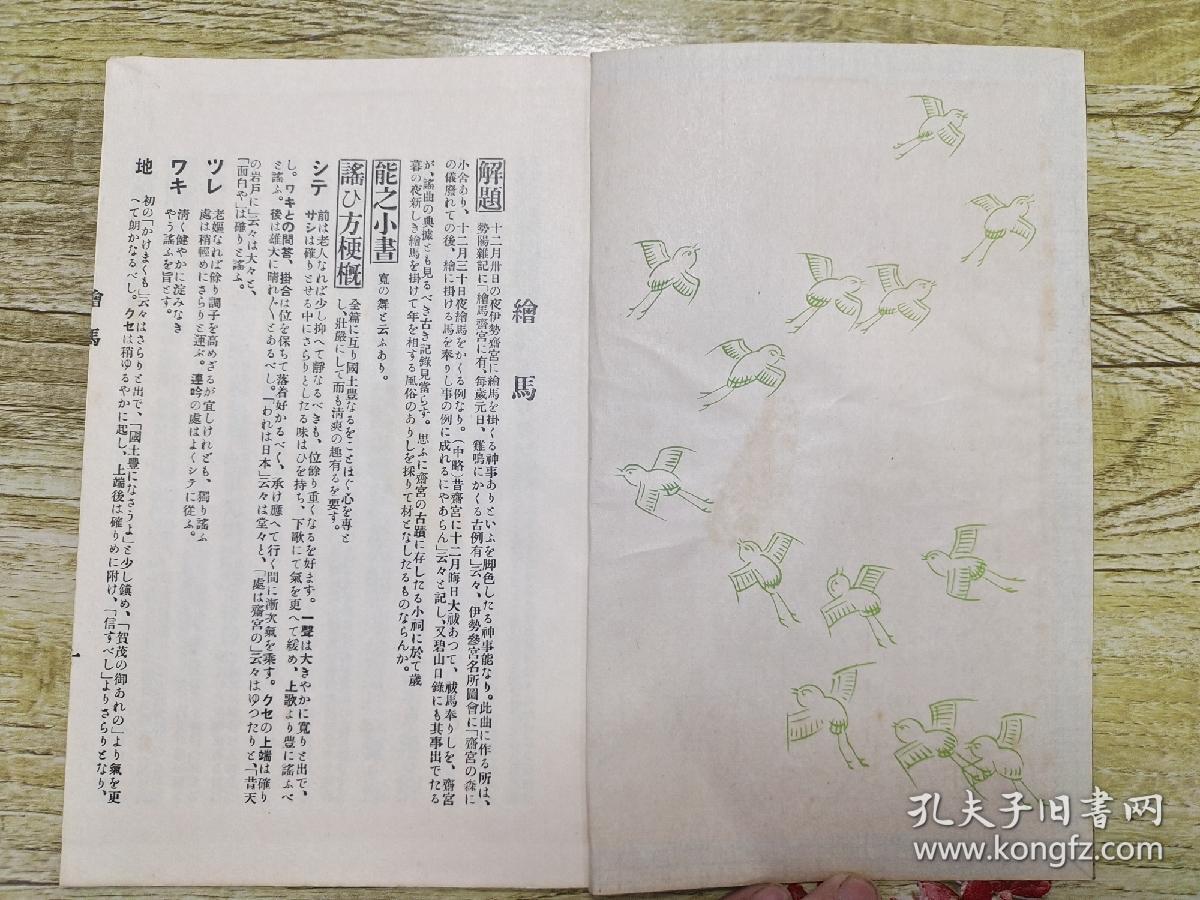 繪馬
解題
十二月卅日の夜伊勢齋宮に繪馬を掛くる神事ありといふを脚色したる神事能なり。此曲に作る所は、
勢陽雜記に「繪馬齋宮に有、每歲元日、雞鳴にかくる古例有」云々、伊勢參宮名所圖會に「齋宮の森に
小舍あり、十二月三十日夜繪馬をかくる例なり。(中略)昔齋宮に十二月晦日大祓あつて、祓馬奉りしを、齋宮
の儀廢れての後、繪に掛ける馬を奉りし事の例に成れるにやあらん」云々と記し、又碧山日錄にも其事出でたる
が、謠曲の典據とも見るべき古き記錄見當らず。思ふに齋宮の古蹟に存したる小祠に於て歲
暮の夜新しき繪馬を掛けて年を相する風俗のありしを採りて材となしたるものならんか。
能之小書
寬の舞と云ふあり。
謠ひ方梗槪
全篇に亙り國土豐なるをことほぐ心を專と
し、壯嚴にして而も淸爽の趣有るを要す。
シテ
前は老人なれば少し抑へて靜なるべきも、位餘り重くなるを好まず。一聲は大きやかに寬りと出で、
サシは確りとせる中にさらりとしたる味はひを持ち、下歌にて氣を更へて緩め、上歌より豐に謠ふべ
し。ワキとの問答、掛合は位を保ちて落着好かるべく、承け應へて行く間に漸次氣を乘す。クセの上端は確り
と謠ふ。後は雄大に晴れ〱とあるべし。「われは日本」云々は堂々と、「處は齋宮の」云々はゆつたりと、「昔天
の岩戶に」云々は大々と、
「面白や」は確りと謠ふ。
ツレ
老嫗なれば餘り調子を高めざるが宜しけれども、獨り謠ふ
處は稍輕めにさらりと運ぶ。連吟の處はよくシテに從ふ。
ワキ
淸く健やかに淀みなき
やう謠ふを旨とす。
地
初の「かけまくも」云々はさらりと出で、「國土豐になさうよ」と少し鎭め、「賀茂の御あれの」より氣を更
へて朗かなるべし。クセは稍ゆるやかに起し、上端後は確りめに附け、「信ずべし」よりさらりとなり、
繪馬
一
孔夫子旧书网
www.kongfz.com